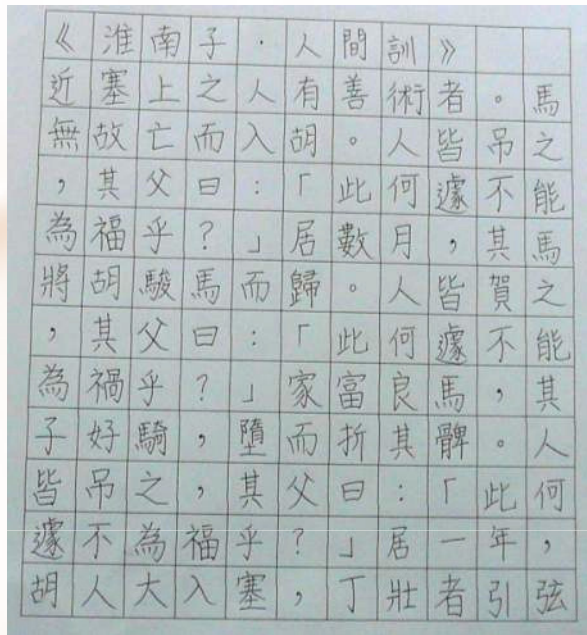 《淮南子·人間訓》
近塞上之人有善術者。馬
無故亡而入胡。人皆吊之
，其父曰：「此何遽不能
為福乎？」居數月，其馬
將胡駿馬而歸。人皆賀之
，其父曰：「此何遽不能
為禍乎？」家富良馬，其
子好騎，墮而折其髀。人
皆吊之，其父曰：「此何
遽不為福乎？」居一年，
胡人大入塞，丁壯者引弦